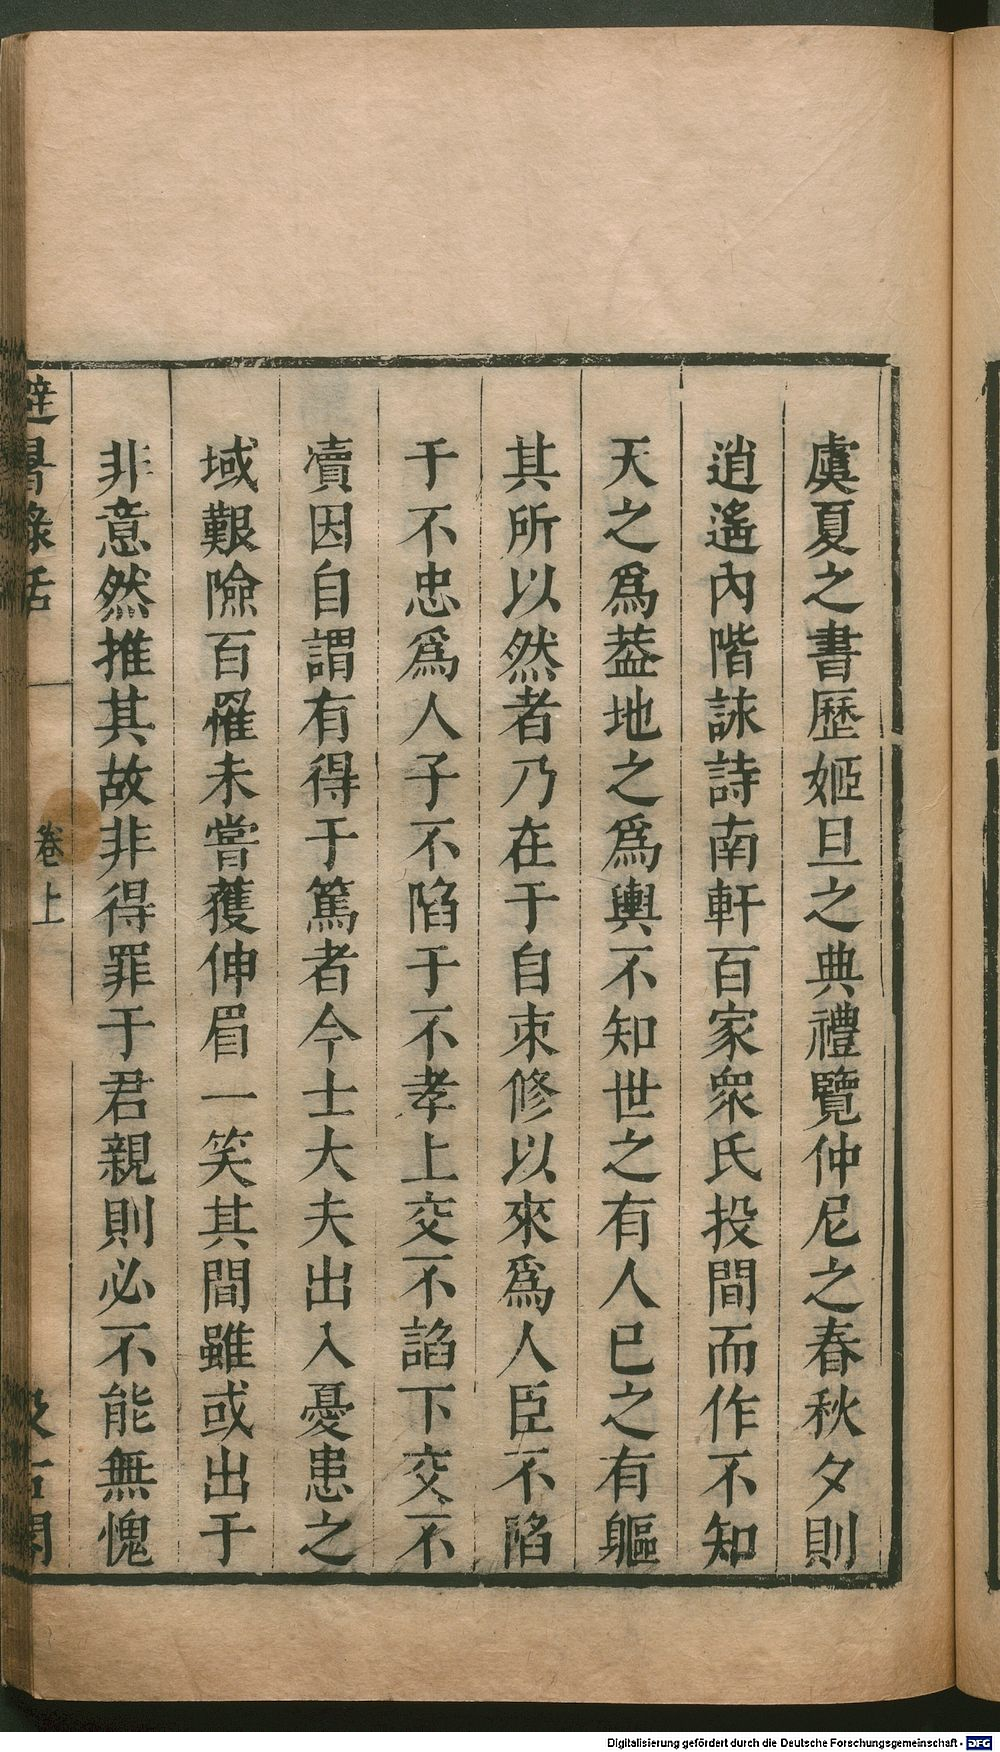 虞夏之書歷姬旦之典禮覽仲尼之春秋夕則
逍遙內階詠詩南軒百家衆氏投間而作不知
天之爲葢地之爲輿不知世之有人已之有軀
其所以然者乃在于自朿修以來爲人臣不陷
于不忠爲人子不陷于不孝上交不諂下交不
凟因自謂有得于篤者今士大夫出入憂患之
域艱險百罹未嘗獲伸眉一笑其間雖或出于
非意然推其故非得罪于君親則必不能無愧
避暑錄話
卷上
汲古閣
Digitalisierung gefördert durch die Deutsche Forschungsgemeinschaft - DFG